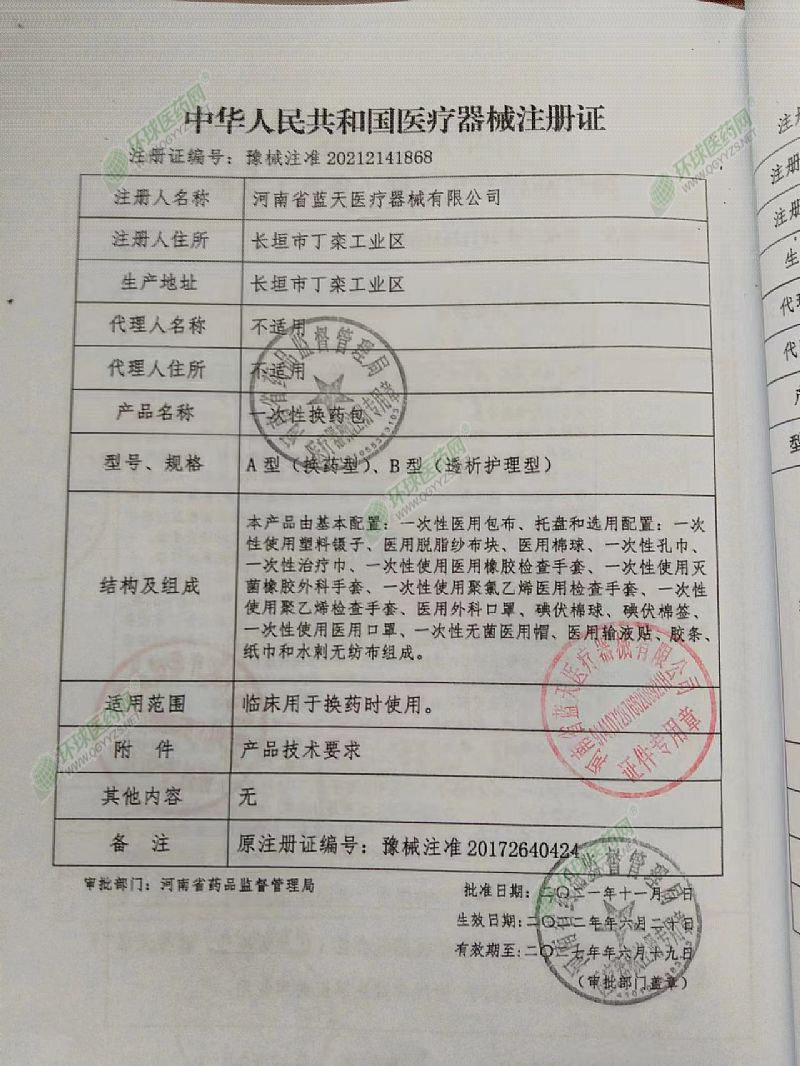 中华人民共和国医疗器械注册证
注册证编号：豫械注准 20212141868
注册人名称 河南省蓝天医疗器械有限公司
注册人住所 长垣市丁栾工业区
生产地址 长垣市丁栾工业区
代理人名称 不适用
代理人住所 不适用
产品名称 一次性换药包
型号、规格 A 型（换药型）、B 型（透析护理型）
结构及组成
本产品由基本配置：一次性医用包布、托盘和选用配置：一次
性使用塑料镊子、医用脱脂纱布块、医用棉球、一次性孔巾、
一次性治疗巾、一次性使用医用橡胶检查手套、一次性使用灭
菌橡胶外科手套、一次性使用聚氯乙烯医用检查手套、一次性
使用聚乙烯检查手套、医用外科口罩、碘伏棉球、碘伏棉签、
一次性使用医用口罩、一次性无菌医用帽、医用输液贴、胶条、
纸巾和水刺无纺布组成。
适用范围 临床用于换药时使用。
附 件 产品技术要求
其他内容 无
备 注 原注册证编号：豫械注准 20172640424
审批部门：河南省药品监督管理局
批准日期：二〇二一年十一月 日
生效日期：二〇二二年六月二十日
有效期至：二〇二七年六月十九日
（审批部门盖章）
河南省药品监督管理局
医疗器械注册专用章
河南省蓝天医疗器械有限公司
证件专用章
河南省药品监督管理局
环球医药网
WWW.QGYYZS.NET
环球医药网
WWW.QGYYZS.NET
环球医药网
WWW.QGYYZS.NET
环球医药网
WWW.QGYYZS.NET
环球医药网
WWW.QGYYZS.NET
注册
注册
注册
生
代理
代
产
型